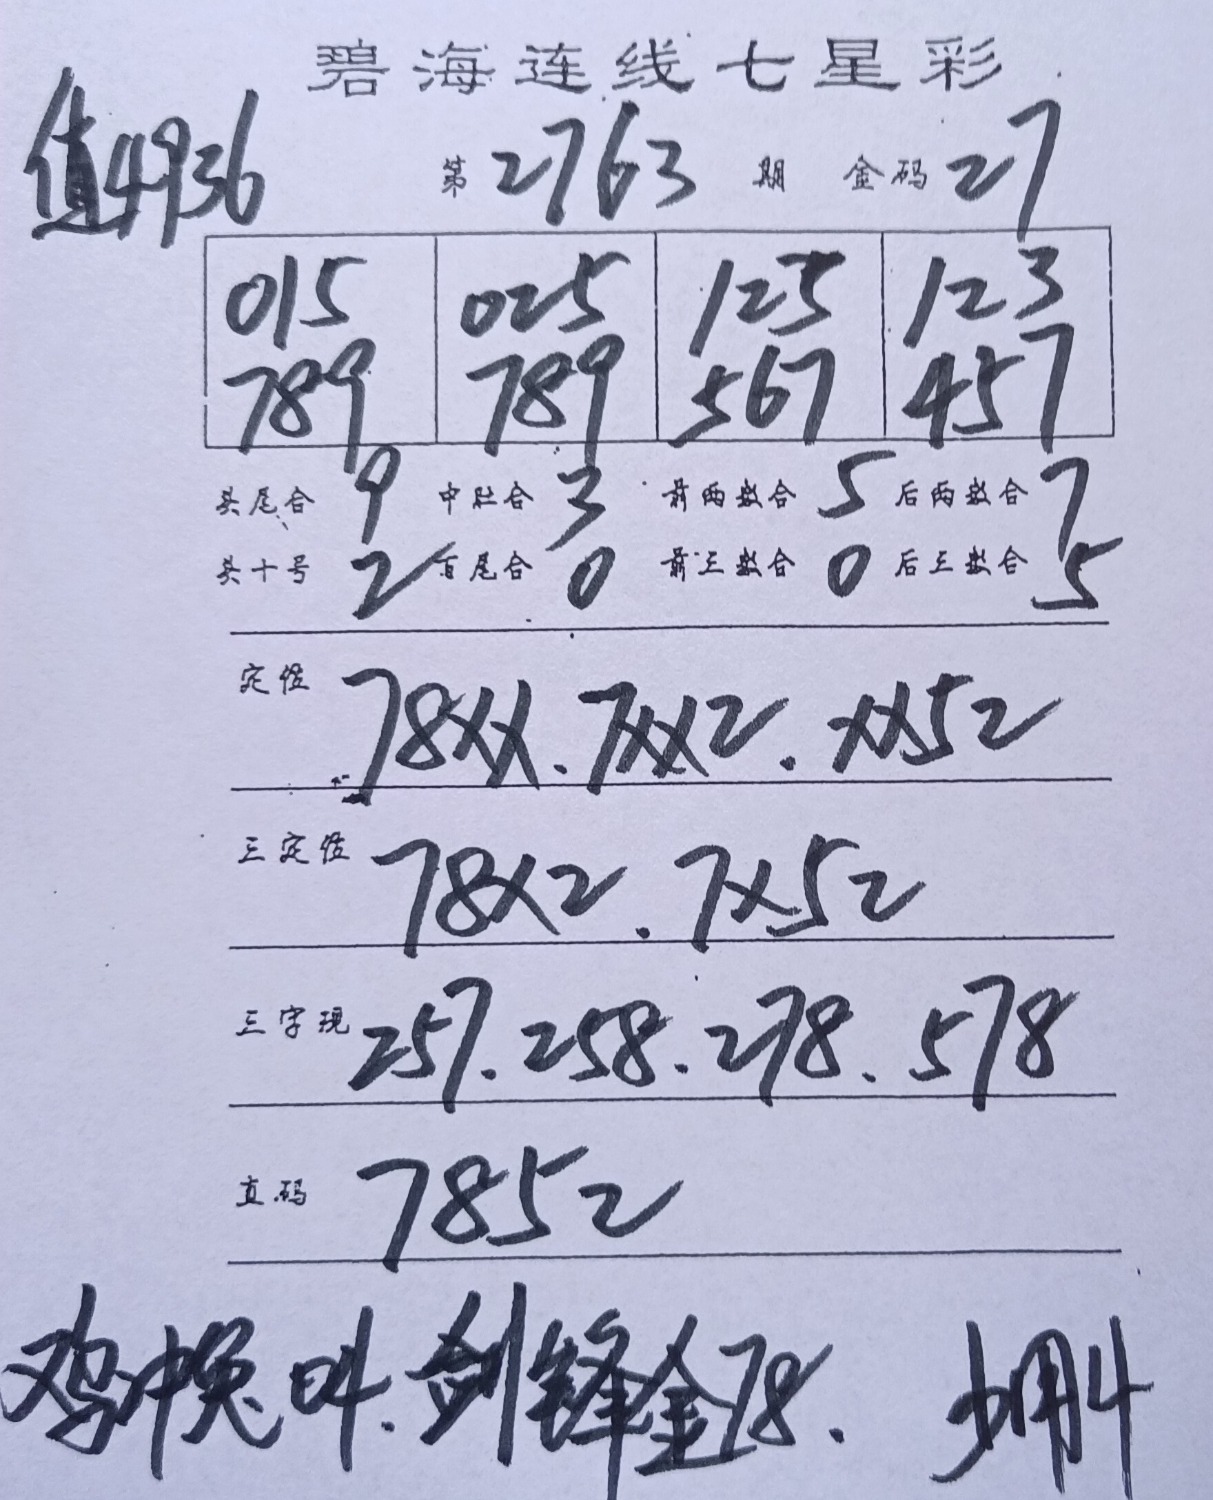 碧海连线七星彩
值4936
第2763期 金码27
015 025 125 123
789 789 567 457
头尾合9 中肚合3 前两数合5 后两数合7
头十合2 百尾合0 前三数合0 后三数合5
定位 78XX.7XX2.XX52
三定位 78X2.7X52
三字现 257.258.278.578
直码 7852
鸡冲兔04.剑锋金78.